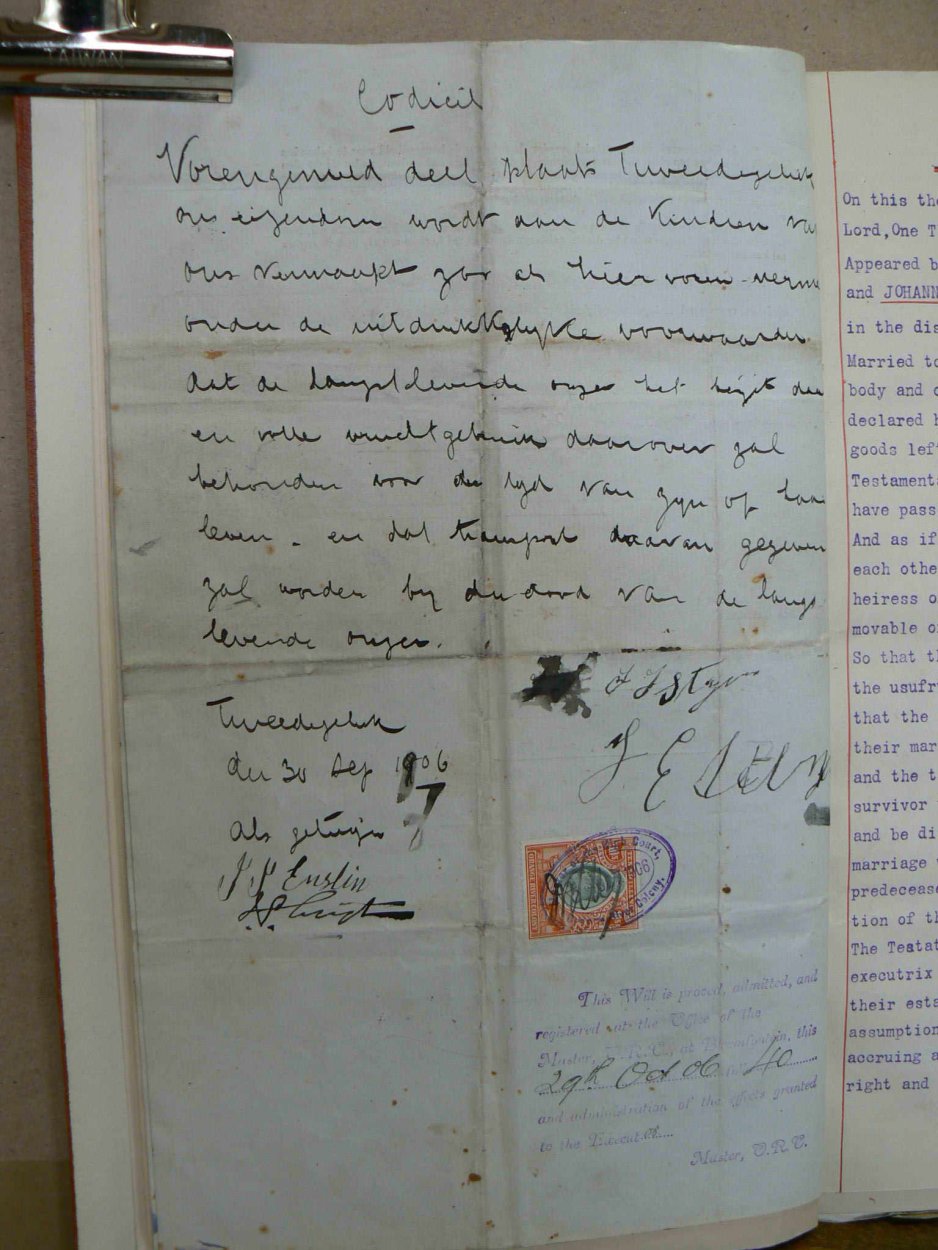 TAIWAN
Codicil
Vorengemeld deel plaats Tweedegeluk
ons eigendom wordt aan de Kinderen va
ons vermaakt zoo als hier voren verme
onder de uitdrukkelyke voorwaarden
dat de langstlevende onzer het
en volle vruchtgebruik daarover zal
behouden voor den tyd van zyn of haar
leven. en dat transport daarvan gegeven
zal worden by den dood van de langs
levende onzer.
Tweedegeluk
den 30 Sep 1906
Als getuigen
Enslin
Court,
1906
Colony.
This Will is proved, admitted, and
registered at the Office of the
Master, O.R.C., at Bloemfontein, this
29th Oct 06
and administration of the effects granted
to the Executor
Master, O.R.C.
On this the
Lord, One T
Appeared b
and JOHANN
in the dis
Married to
body and
declared h
goods lef
Testament
have pass
And as if
each othe
heiress o
movable o
So that th
the usufr
that the
their mar
and the t
survivor
and be di
marriage
predecease
tion of th
The Testat
executrix
their esta
assumption
accruing a
right and